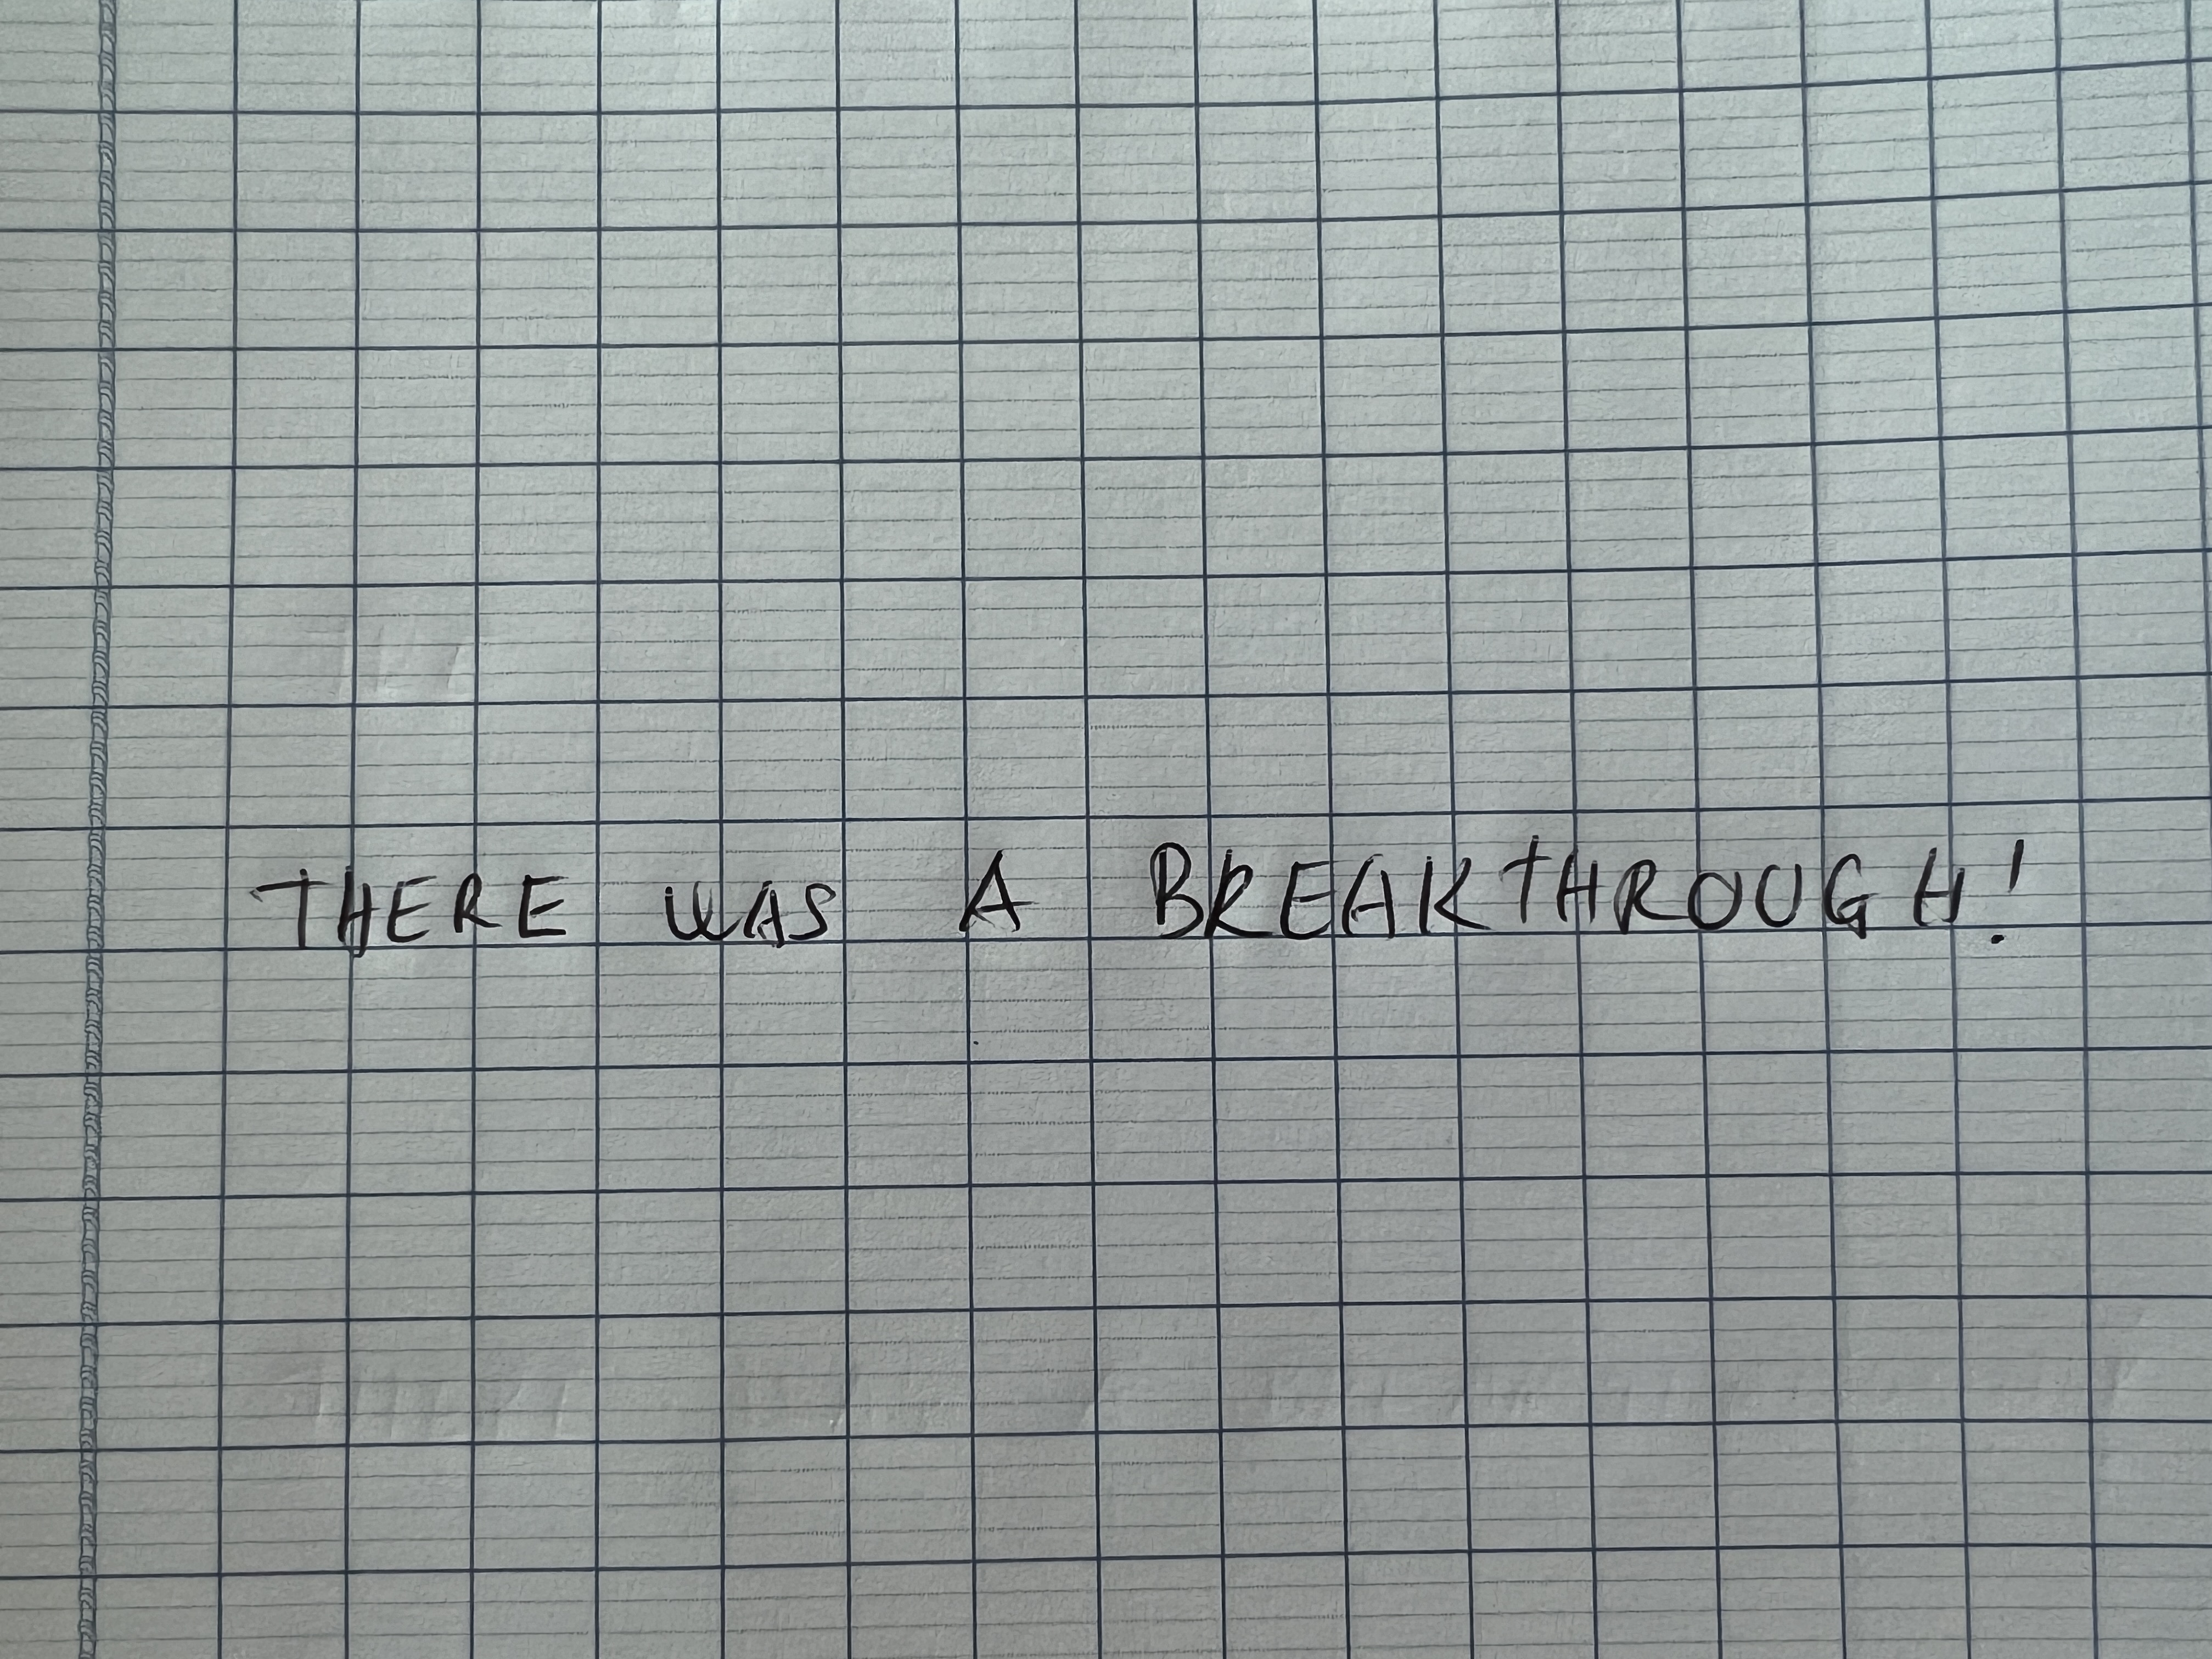 THERE WAS A BREAKTHROUGH!